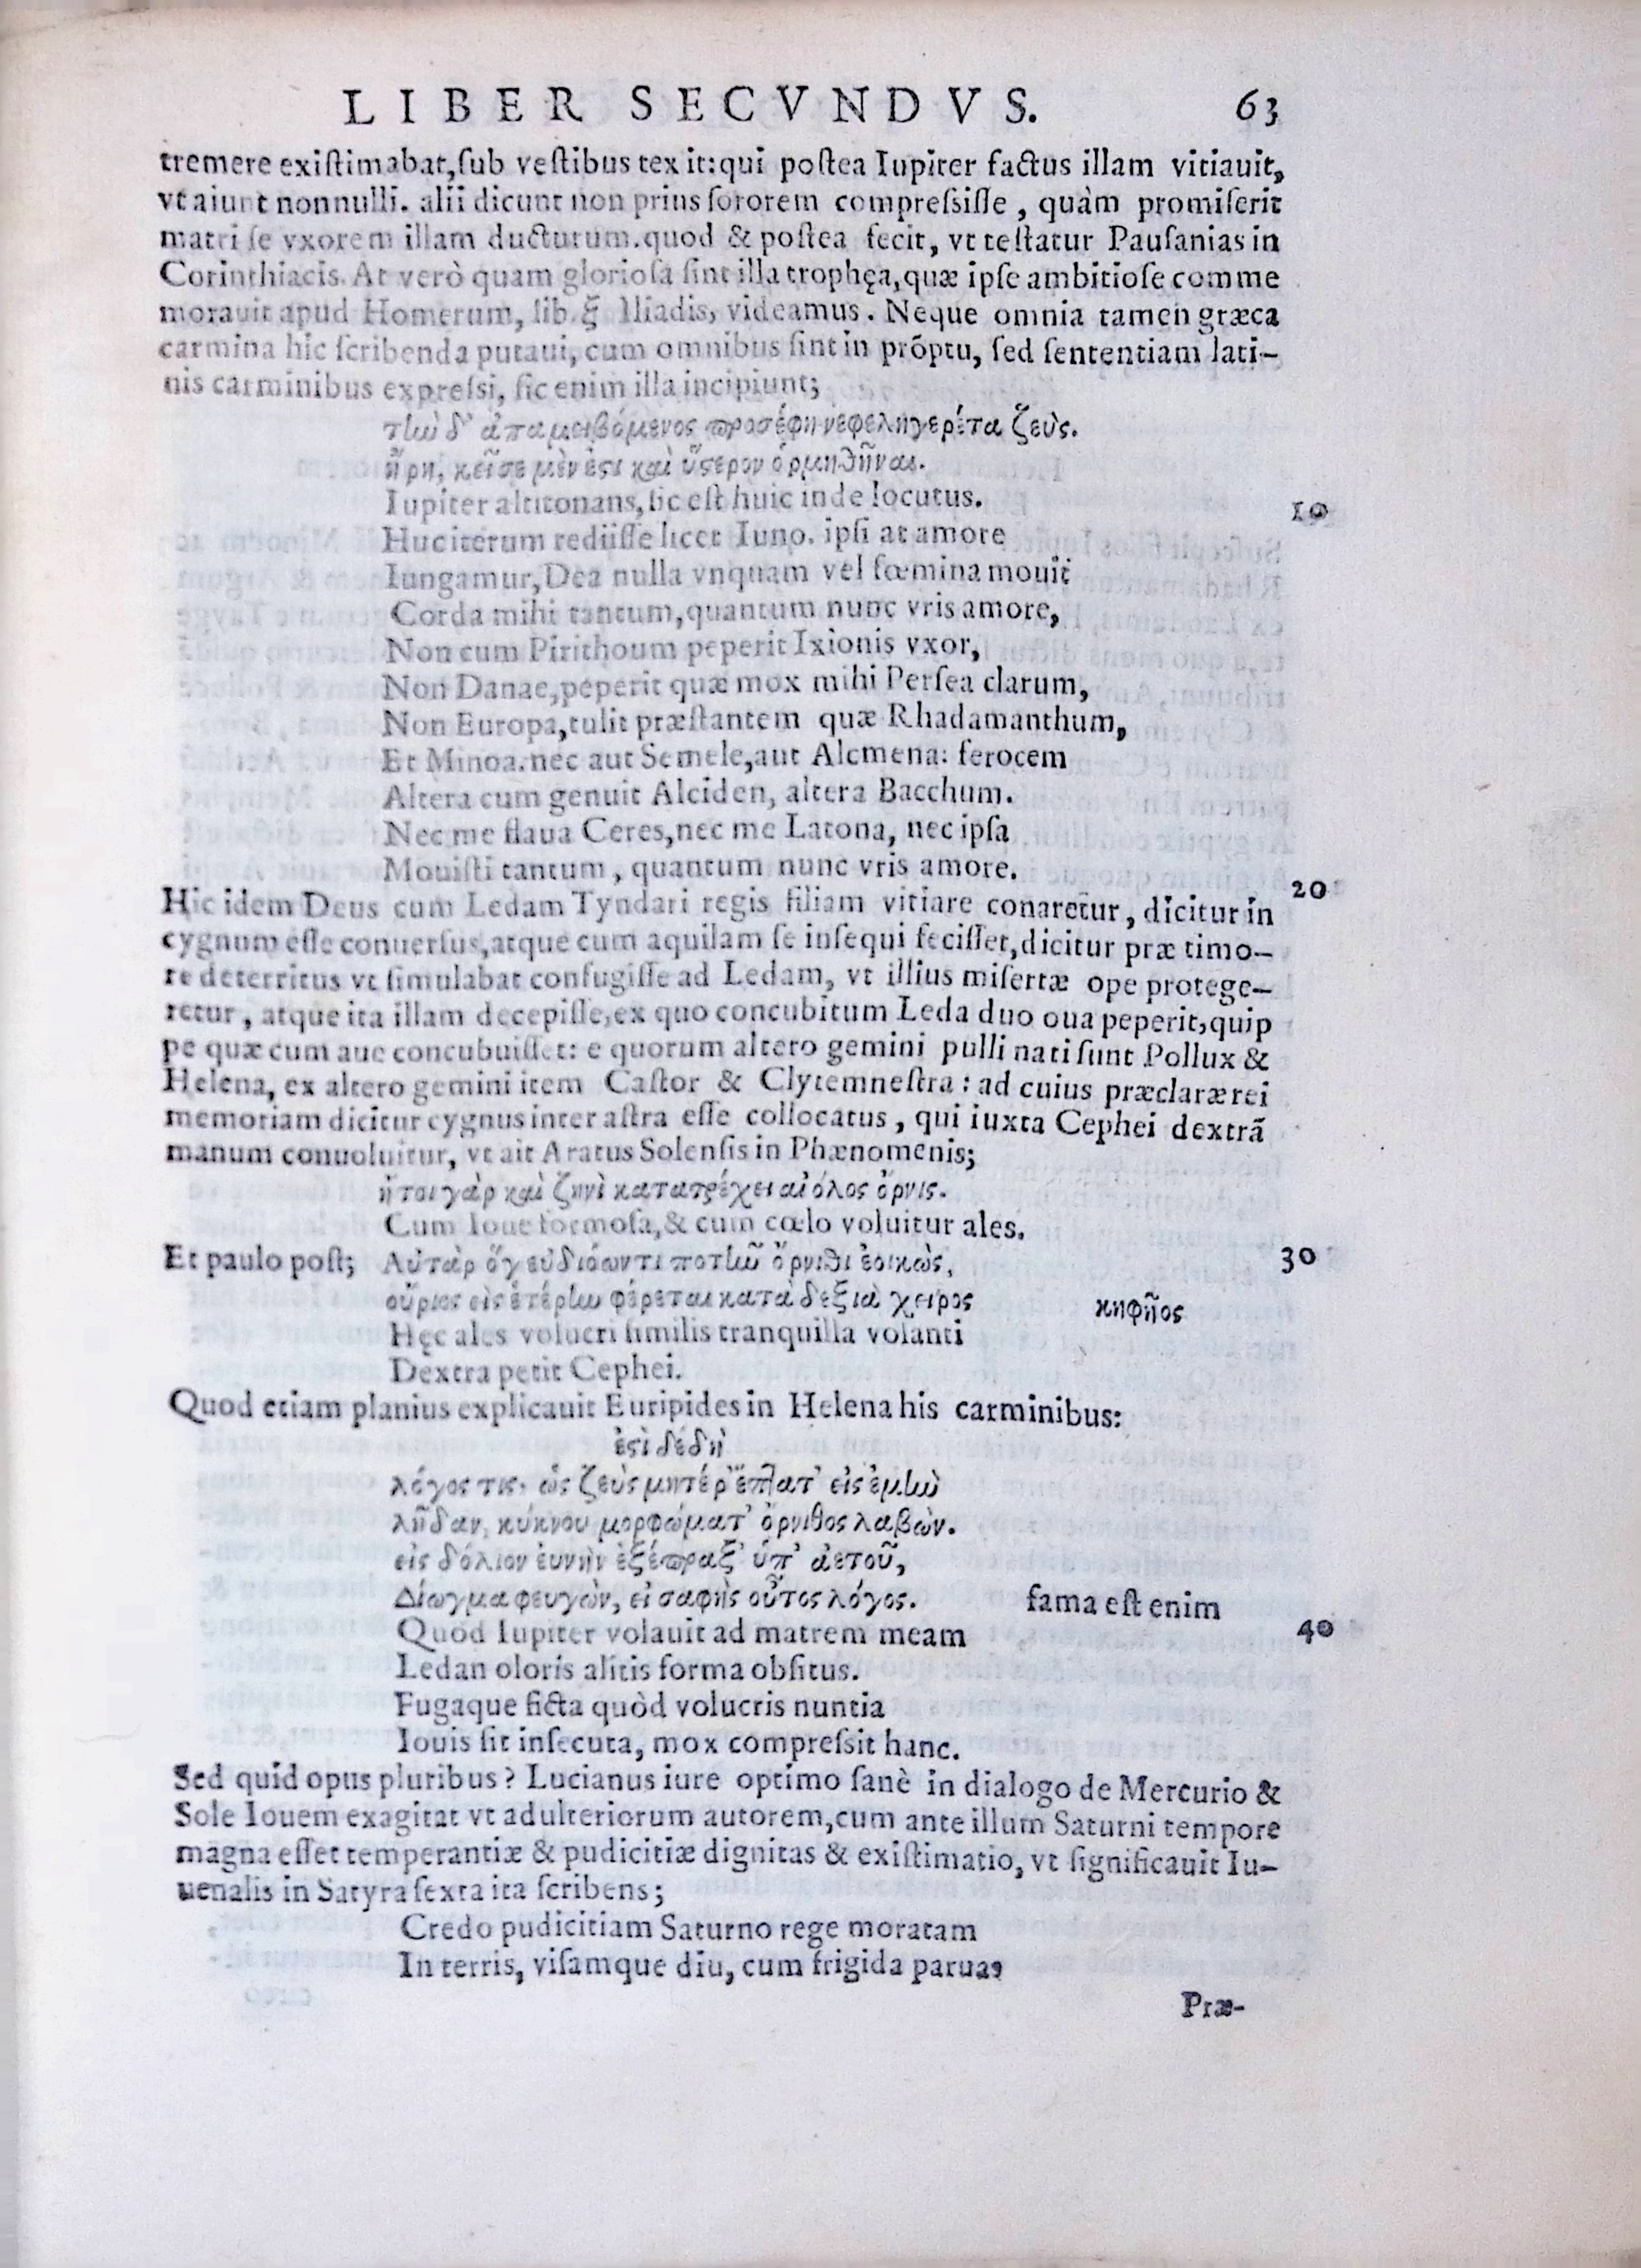 LIBER SECVNDVS. 63
tremere existimabat, sub vestibus texit: qui postea Iupiter factus illam vitiauit,
vt aiunt nonnulli. alii dicunt non prius sororem compressisse, quàm promiserit
matri se vxorem illam ducturum. quod & postea fecit, vt testatur Pausanias in
Corinthiacis. At verò quam gloriosa sint illa trophęa, quæ ipse ambitiose comme
morauit apud Homerum, lib. ξ Iliadis, videamus. Neque omnia tamen græca
carmina hic scribenda putaui, cum omnibus sint in prõptu, sed sententiam lati-
nis carminibus expressi, sic enim illa incipiunt;
τὴν δ' ἀπαμειβόμενος προσέφη νεφεληγερέτα ζεὺς.
ἥρη, κεῖσε μὲν ἐστι καὶ ὕστερον ὁρμηθῆναι.
Iupiter altitonans, sic est huic inde locutus.
10
Huc iterum rediisse licet Iuno. ipsi at amore
Iungamur, Dea nulla vnquam vel fœmina mouit
Corda mihi tantum, quantum nunc vris amore,
Non cum Pirithoum peperit Ixionis vxor,
Non Danae, peperit quæ mox mihi Persea clarum,
Non Europa, tulit præstantem quæ Rhadamanthum,
Et Minoa. nec aut Semele, aut Alcmena: ferocem
Altera cum genuit Alciden, altera Bacchum.
Nec me flaua Ceres, nec me Latona, nec ipsa
Mouisti tantum, quantum nunc vris amore.
20
Hic idem Deus cum Ledam Tyndari regis filiam vitiare conaretur, dicitur in
cygnum esse conuersus, atque cum aquilam se insequi fecisset, dicitur præ timo-
re deterritus vt simulabat confugisse ad Ledam, vt illius misertæ ope protege-
retur, atque ita illam decepisse, ex quo concubitum Leda duo oua peperit, quip
pe quæ cum aue concubuisset: e quorum altero gemini pulli nati sunt Pollux &
Helena, ex altero gemini item Castor & Clytemnestra: ad cuius præclaræ rei
memoriam dicitur cygnus inter astra esse collocatus, qui iuxta Cephei dextrã
manum conuoluitur, vt ait Aratus Solensis in Phænomenis;
ἤτοι γὰρ καὶ ζηνὶ κατατρέχει αἰόλος ὄρνις.
Cum Ioue formosa, & cum cœlo voluitur ales.
Et paulo post; Αὐτὰρ ὅγ εὐδιόωντι ποτὴν ὄρνιθι ἐοικὼς,
30
οὔριος εἰς ἑτέρην φέρεται κατὰ δεξιὰ χειρος κηφῆος
Hęc ales volucri similis tranquilla volanti
Dextra petit Cephei.
Quod etiam planius explicauit Euripides in Helena his carminibus:
ἐστὶ δὲ δὴ
λόγος τις. ὡς ζεὺς μητέρ' ἔπλατ' εἰς ἐμὴν
λῆδαν, κύκνου μορφώματ' ὄρνιθος λαβὼν.
εἰς δόλιον ἐυνὴν ἐξέπραξ' ὑπ' ἀετοῦ,
Δίωγμα φευγὼν, εἰ σαφὴς οὗτος λόγος. fama est enim
Quòd Iupiter volauit ad matrem meam
40
Ledan oloris alitis forma obsitus.
Fugaque ficta quòd volucris nuntia
Iouis sit insecuta, mox compressit hanc.
Sed quid opus pluribus? Lucianus iure optimo sanè in dialogo de Mercurio &
Sole Iouem exagitat vt adulteriorum autorem, cum ante illum Saturni tempore
magna esset temperantiæ & pudicitiæ dignitas & existimatio, vt significauit Iu-
uenalis in Satyra sexta ita scribens;
Credo pudicitiam Saturno rege moratam
In terris, visamque diu, cum frigida paruas
Præ-